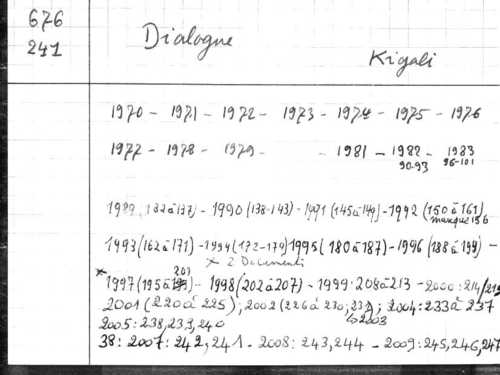 676
241
Dialogue
Kigali
1970 - 1971 - 1972 - 1973 - 1974 - 1975 - 1976
1977 - 1978 - 1979 - - 1981 - 1982 - 1983
90-93 96-101
1989 (132 à 137) - 1990 (138-143) - 1991 (145 à 149) - 1992 (150 à 161)
manque 156
1993 (162 à 171) - 1994 (172-179) 1995 (180 à 187) - 1996 (188 à 199) -
* 2 Documenti
201
* 1997 (195 à - 1998 (202 à 207) - 1999: 208 à 213 - 2000: 214/219
2001 (220 à 225); 2002 (226 à 230; ; 2004: 233 à 237
↳ 2003
2005: 238, 239, 240
38: 2007: 242, 241 - 2008: 243, 244 - 2009: 245, 246, 247